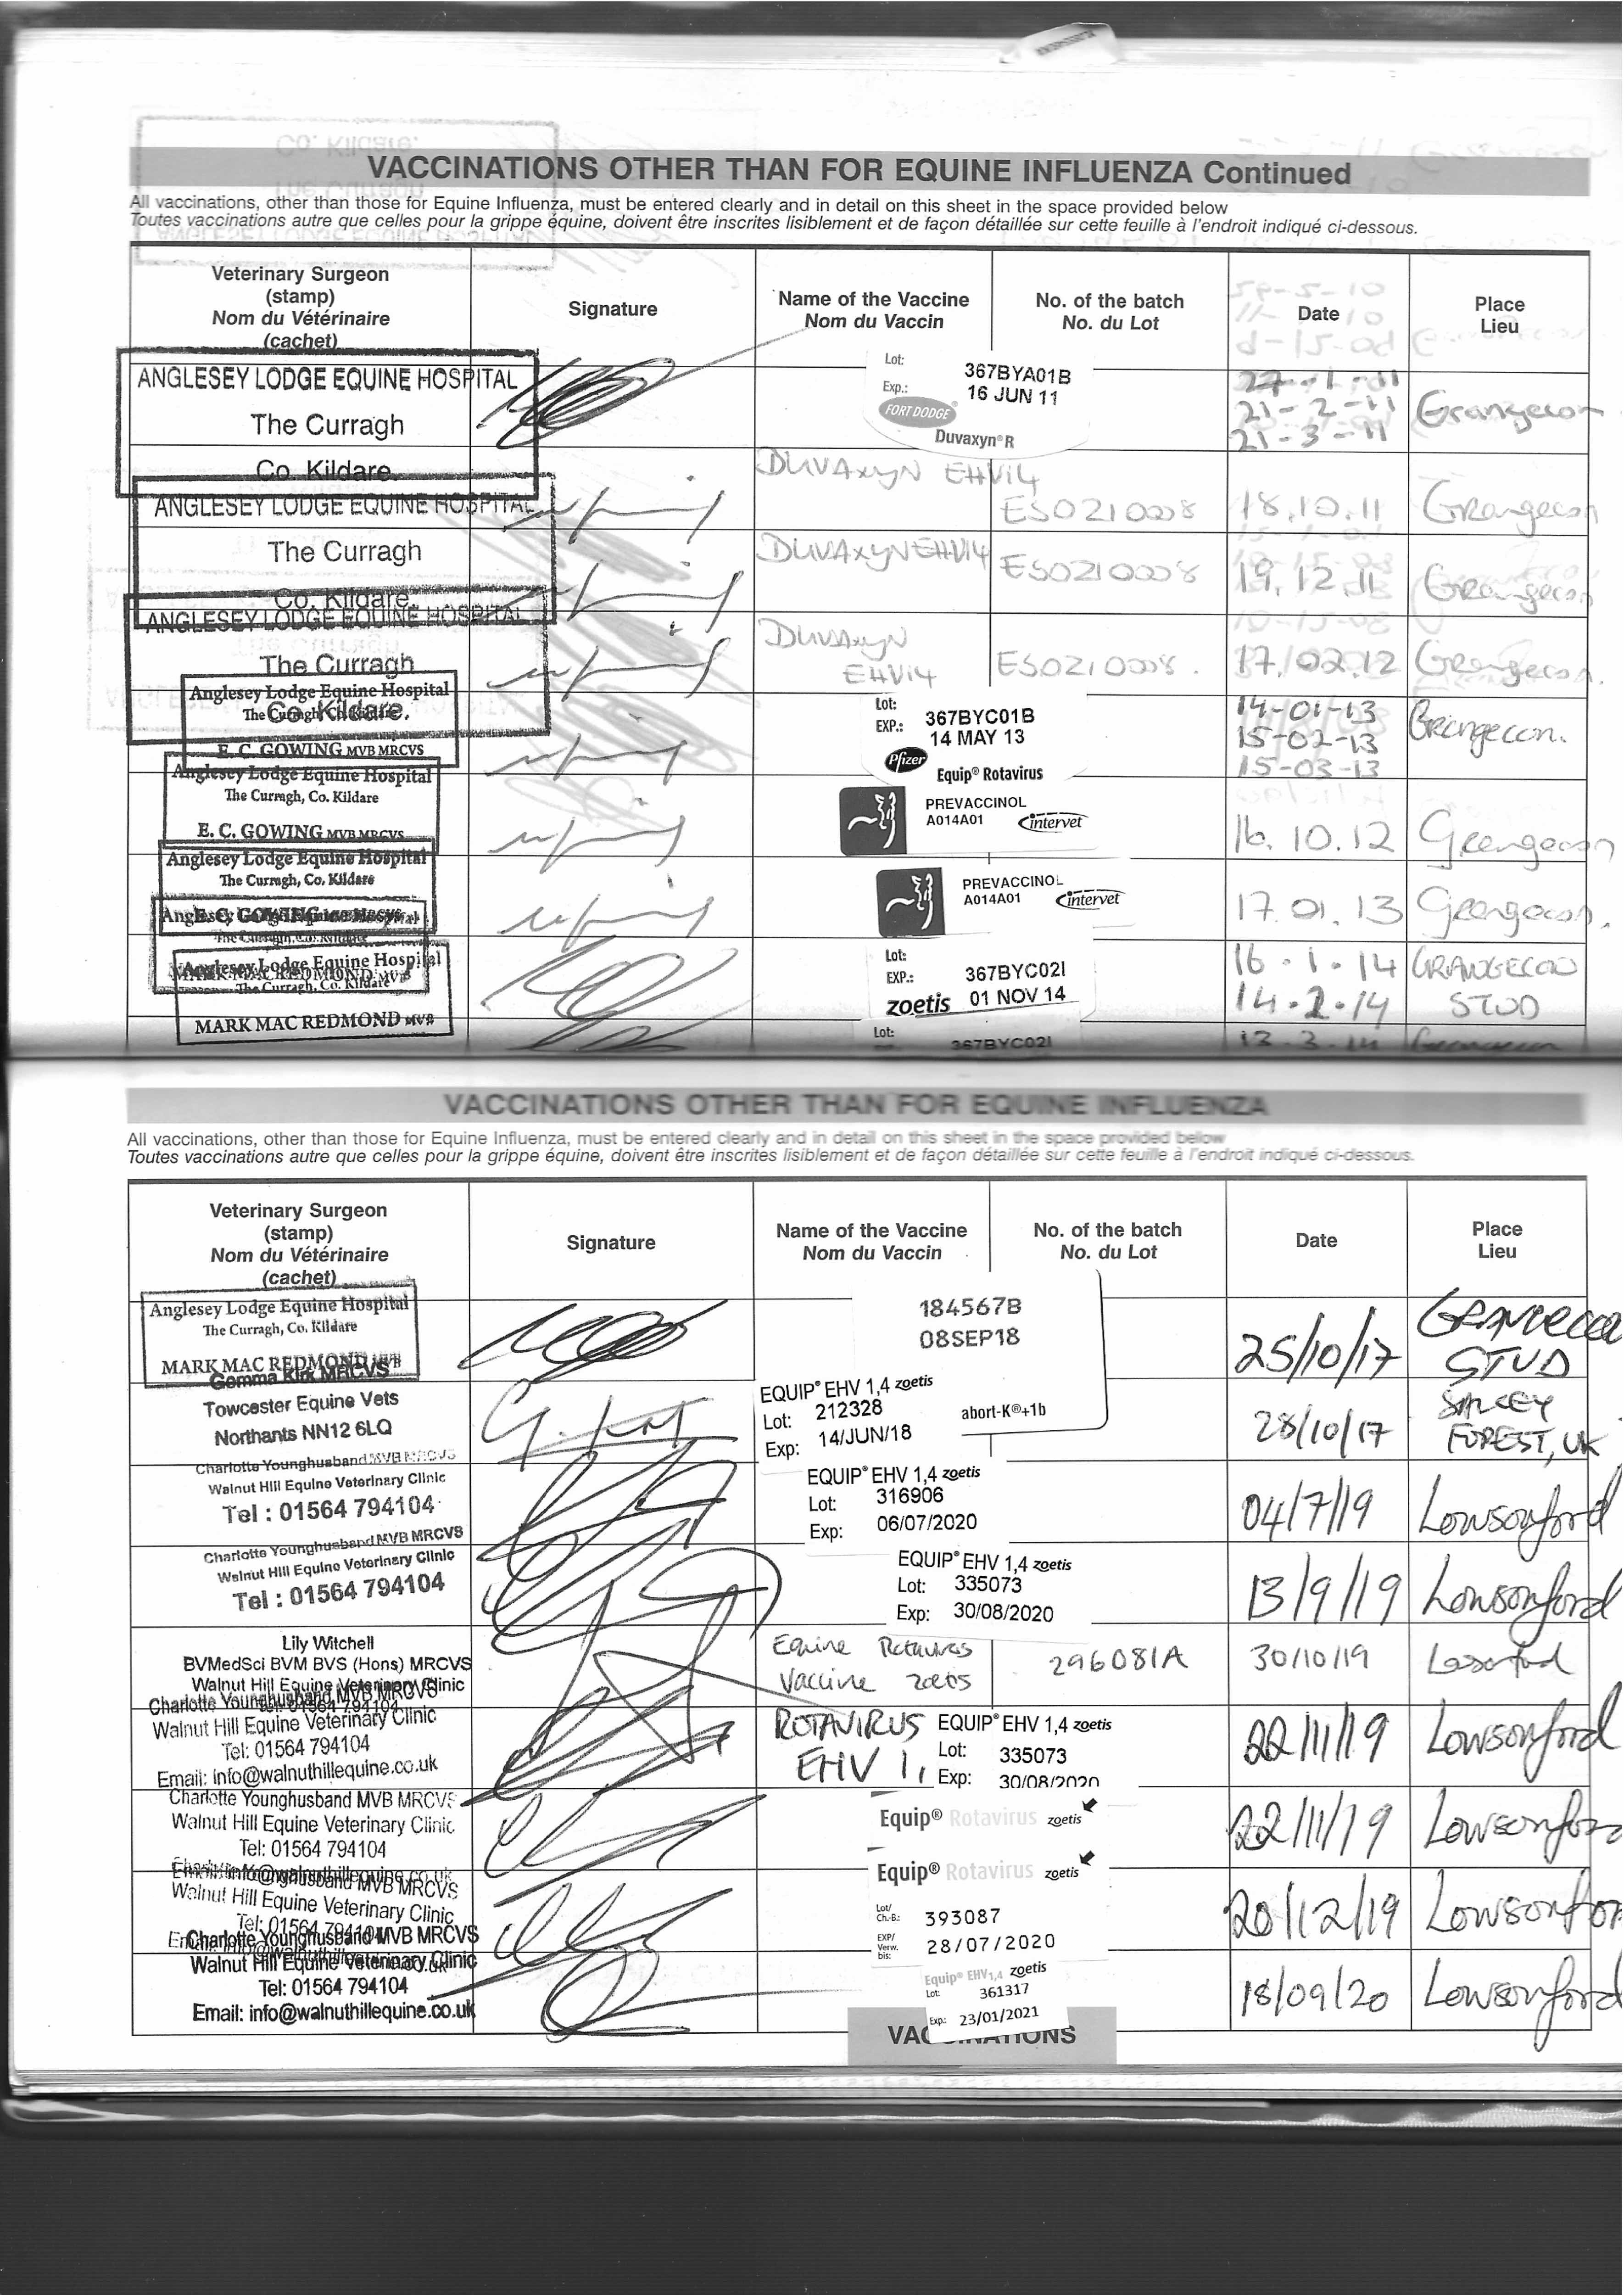 VACCINATIONS OTHER THAN FOR EQUINE INFLUENZA Continued
All vaccinations, other than those for Equine Influenza, must be entered clearly and in detail on this sheet in the space provided below
Toutes vaccinations autre que celles pour la grippe équine, doivent être inscrites lisiblement et de façon détaillée sur cette feuille à l'endroit indiqué ci-dessous.
Veterinary Surgeon (stamp) Nom du Vétérinaire (cachet)
Signature
Name of the Vaccine Nom du Vaccin
No. of the batch No. du Lot
Date
Place Lieu
ANGLESEY LODGE EQUINE HOSPITAL
The Curragh
Co. Kildare.
Lot: 367BYA01B
Exp.: 16 JUN 11
FORT DODGE
Duvaxyn® R
27-1-11
21-2-11
21-3-11
Grangecon
ANGLESEY LODGE EQUINE HOSPITAL
The Curragh
Co. Kildare.
DUVAXYN EHV14
ES0210008
18.10.11
Grangecon
DUVAXYN EHV14
ES0210008
19.12.11
Grangecon
ANGLESEY LODGE EQUINE HOSPITAL
The Curragh
Co. Kildare.
DUVAXYN
EHV14
ES0210008.
17/02.12
Grangecon.
Anglesey Lodge Equine Hospital
The Curragh, Co. Kildare
E. C. GOWING MVB MRCVS
Lot: 367BYC01B
EXP.: 14 MAY 13
Pfizer
Equip® Rotavirus
14-01-13
15-02-13
15-03-13
Grangecon.
Anglesey Lodge Equine Hospital
The Curragh, Co. Kildare
E. C. GOWING MVB MRCVS
PREVACCINOL
A014A01
intervet
16.10.12
Grangecon
Anglesey Lodge Equine Hospital
The Curragh, Co. Kildare
E. C. GOWING
PREVACCINOL
A014A01
intervet
17.01.13
Grangecon.
Anglesey Lodge Equine Hospital
The Curragh, Co. Kildare
MARK MAC REDMOND MVB
Lot: 367BYC02I
EXP.: 01 NOV 14
zoetis
16.1.14
14.2.14
GRANGECON
STUD
Anglesey Lodge Equine Hospital
The Curragh, Co. Kildare
MARK MAC REDMOND MVB
Lot: 367BYC02I
13-3-14
Grangecon
VACCINATIONS OTHER THAN FOR EQUINE INFLUENZA
All vaccinations, other than those for Equine Influenza, must be entered clearly and in detail on this sheet in the space provided below
Toutes vaccinations autre que celles pour la grippe équine, doivent être inscrites lisiblement et de façon détaillée sur cette feuille à l'endroit indiqué ci-dessous.
Veterinary Surgeon (stamp) Nom du Vétérinaire (cachet)
Signature
Name of the Vaccine Nom du Vaccin
No. of the batch No. du Lot
Date
Place Lieu
Anglesey Lodge Equine Hospital
The Curragh, Co. Kildare
MARK MAC REDMOND MVB
184567B
08SEP18
abort-K®+1b
25/10/17
STUD
Gemma Kirk MRCVS
Towcester Equine Vets
Northants NN12 6LQ
G. Kirk
EQUIP® EHV 1,4 zoetis
Lot: 212328
Exp: 14/JUN/18
28/10/17
SALCEY
FOREST, UK
Charlotte Younghusband MVB MRCVS
Walnut Hill Equine Veterinary Clinic
Tel : 01564 794104
EQUIP® EHV 1,4 zoetis
Lot: 316906
Exp: 06/07/2020
04/7/19
Lowsonford
Charlotte Younghusband MVB MRCVS
Walnut Hill Equine Veterinary Clinic
Tel : 01564 794104
EQUIP® EHV 1,4 zoetis
Lot: 335073
Exp: 30/08/2020
13/9/19
Lowsonford
Lily Witchell
BVMedSci BVM BVS (Hons) MRCVS
Walnut Hill Equine Veterinary Clinic
Tel: 01564 794104
Equine Rotavirus
Vaccine zoetis
296081A
30/10/19
Charlotte Younghusband MVB MRCVS
Walnut Hill Equine Veterinary Clinic
Tel: 01564 794104
Email: info@walnuthillequine.co.uk
ROTAVIRUS
EHV 1,
EQUIP® EHV 1,4 zoetis
Lot: 335073
Exp: 30/08/2020
22/11/19
Lowsonford
Charlotte Younghusband MVB MRCVS
Walnut Hill Equine Veterinary Clinic
Tel: 01564 794104
Email: info@walnuthillequine.co.uk
Equip® Rotavirus zoetis
22/11/19
Lowsonford
Charlotte Younghusband MVB MRCVS
Walnut Hill Equine Veterinary Clinic
Tel: 01564 794104
Equip® Rotavirus zoetis
Lot/ Ch.-B.: 393087
EXP/ Verw. bis: 28/07/2020
20/12/19
Lowsonford
Charlotte Younghusband MVB MRCVS
Walnut Hill Equine Veterinary Clinic
Tel: 01564 794104
Email: info@walnuthillequine.co.uk
Equip® EHV 1,4 zoetis
Lot: 361317
Exp: 23/01/2021
18/09/20
Lowsonford
VACCINATIONS